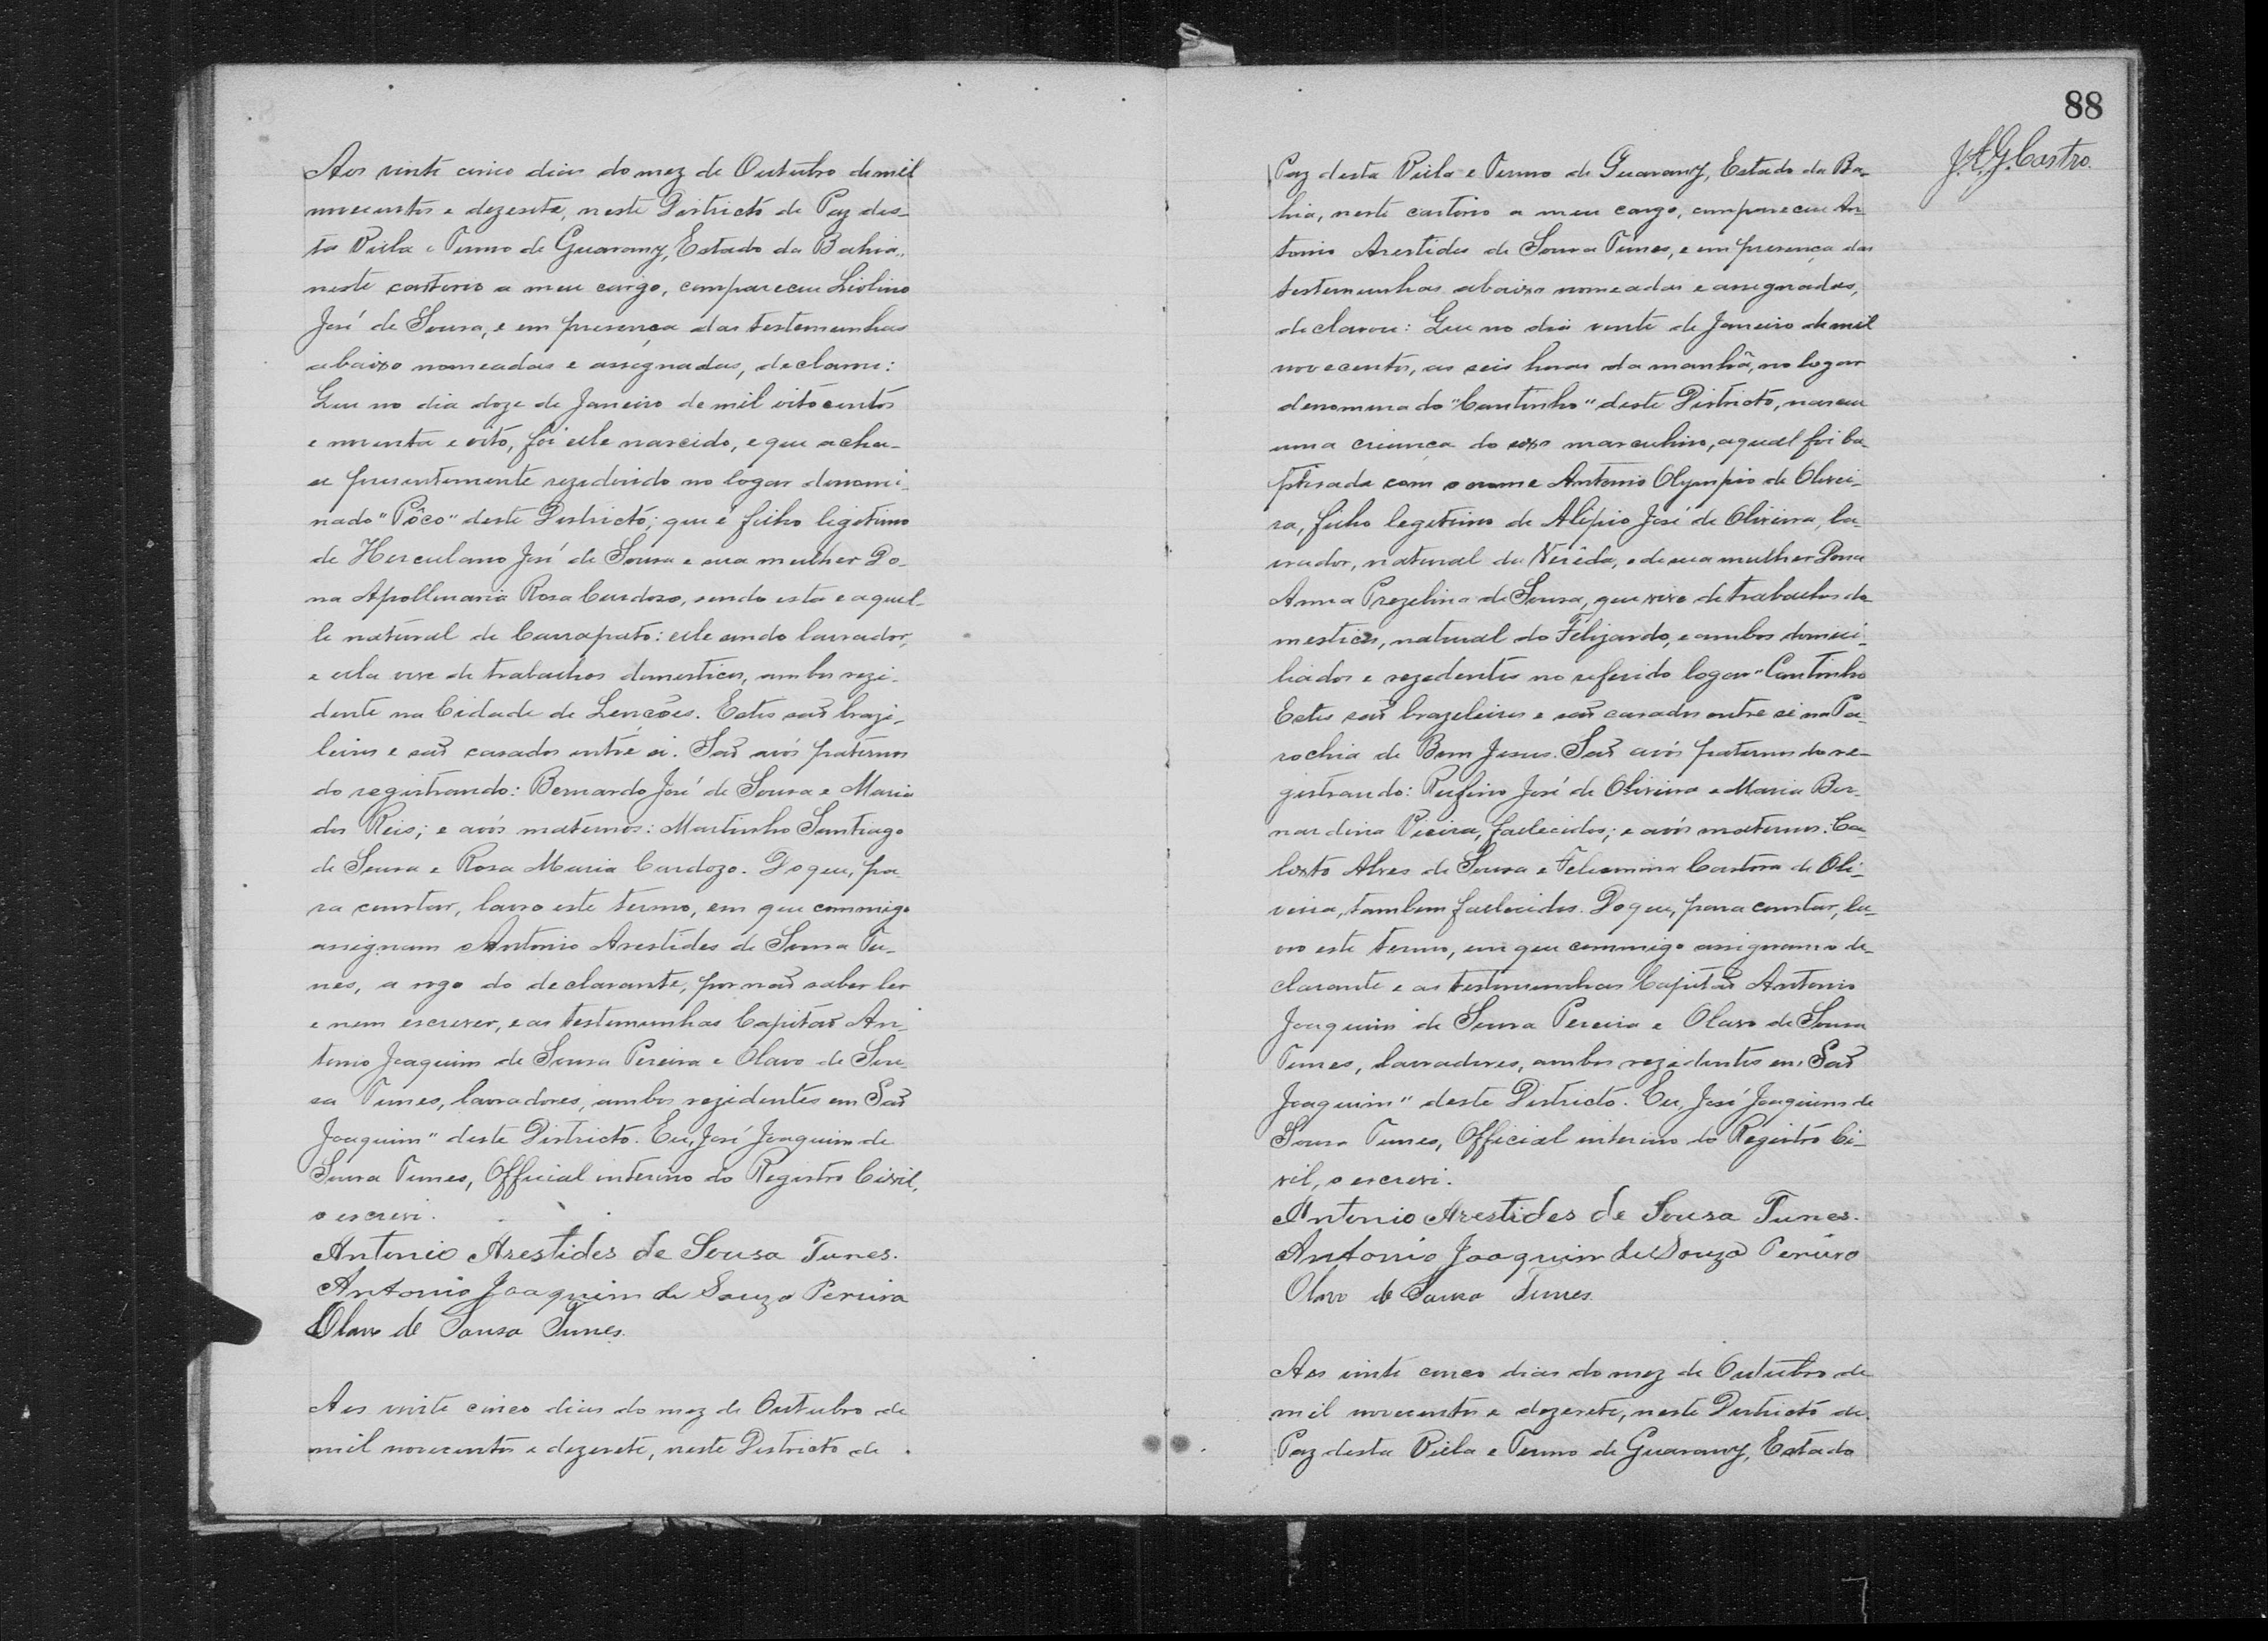 Aos vinte cinco dias do mez de Outubro de mil
novecentos e dezesete, neste Districto de Paz des-
ta Villa e Termo de Guarany, Estado da Bahia,
neste cartorio a meu cargo, compareceu Liolino
José de Sousa, e em presença das testemunhas
abaixo nomeadas e assignadas, declarou:
Que no dia doze de Janeiro de mil oitocentos
e noventa e oito, foi elle nascido, e que acha-
se presentemente rezedindo no logar denomi-
nado "Pôco" deste Districto; que é filho legitimo
de Herculano José de Sousa e sua mulher Do-
na Apollinaria Rosa Cardozo, sendo esta e aquel-
le natural de Carrapato: elle sendo lavrador,
e ella vive de trabalhos domesticos, ambos rezi-
dente na Cidade de Lencóes. Estes saõ brazi-
leiros e saõ casados entre si. Saõ avós paternos
do registrando: Bernardo José de Sousa e Maria
dos Reis; e avós maternos: Martinho Santiago
de Sousa e Rosa Maria Cardozo. Do que, pa
ra constar, lavro este termo, em que commigo
assignam Antonio Arestides de Sousa Tu-
nes, a rogo do declarante, por naõ saber ler
e nem escrever, e as testemunhas Capitaõ An-
tonio Joaquim de Sousa Pereira e Olavo de Sou-
sa Tunes, lavradores, ambos rezidentes em Saõ
Joaquim" deste Districto. Eu, José Joaquim de
Sousa Tunes, Official interino do Registro Civil,
o escrevi.
Antonio Arestides de Sousa Tunes.
Antonio Joaquim de Souza Pereira
Olavo de Sousa Tunes.
Aos vinte cinco dias do mez de Outubro de
mil novecentos e dezesete, neste Districto de
88
J. A. G. Castro.
Paz desta Villa e Termo de Guarany, Estado da Ba-
hia, neste cartorio a meu cargo, compareceu An-
tonio Arestides de Sousa Tunes, e em presença das
testemunhas abaixo nomeadas e assignadas,
declarou: Que no dia vente de Janeiro de mil
novecentos, as seis horas da manhã, no logar
denominado "Cantinho" deste Districto, nasceu
uma criança do sexo masculino, a qual foi ba
ptisada com o nome Antonio Olympio de Olivei-
ra, filho legitimo de Alipio José de Oliveira, la-
vrador, natural da Verêda, e de sua mulher Dona
Anna Prezelina de Sousa, que vive de trabalhos do-
mesticos, natural do Felizardo, e ambos domici-
liados e rezedentes no referido logar "Cantinho
Estes saõ brazeleiros e saõ casados entre si na Pa-
rochia de Bom Jesus. Saõ avós paternos do re-
gistrando: Rufino José de Oliveira e Maria Ber-
nardina Vieira, fallecidos; e avós maternos: Ca-
lixto Alves de Sousa e Felismina de Oli-
veira, tambem fallecidos. Do que, para constar, la-
vro este termo, em que commigo assignam o de-
clarante e as testemunhas Capitaõ Antonio
Joaquim de Sousa Pereira e Olavo de Sousa
Tunes, lavradores, ambos rezedentes em Saõ
Joaquim" deste Districto. Eu, José Joaquim de
Sousa Tunes, Official interino do Registro Ci-
vil, o escrevi.
Antonio Arestides de Sousa Tunes.
Antonio Joaquim de Souza Pereira
Olavo de Sousa Tunes
Aos vinte cinco dias do mez de Outubro de
mil novecentos e dezesete, neste Districto de
Paz desta Villa e Termo de Guarany, Estado